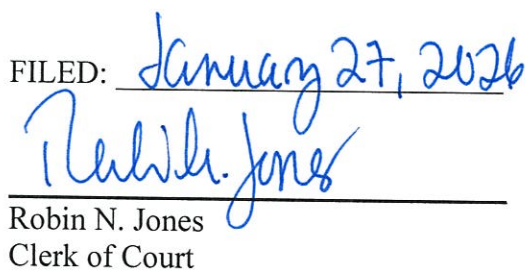 FILED: January 27, 2026
Robin N. Jones
Robin N. Jones
Clerk of Court